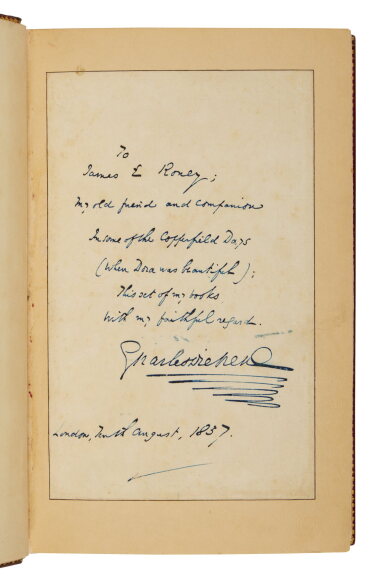 To
James E Roney;
my old friend and companion
In some of the Copperfield Days
(when Dora was beautiful):
This set of my books
With my faithful regards.
Charles Dickens
London, Tenth August, 1857.